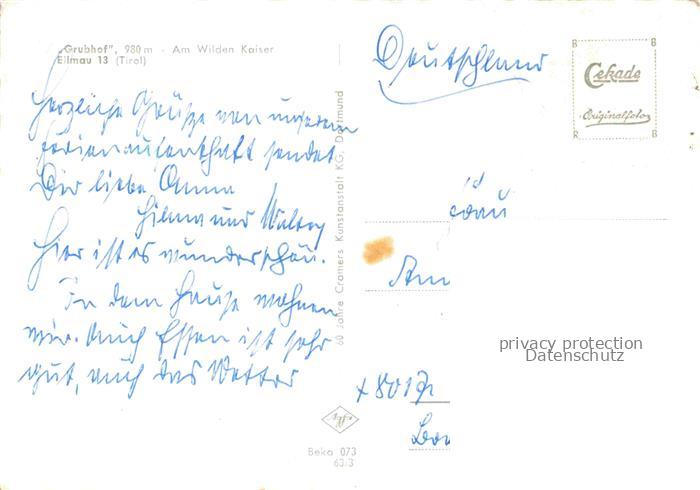 „Grubhof", 980 m - Am Wilden Kaiser
Ellmau 13 (Tirol)
Herzliche Grüße von unserem
Ferienaufenthalt sendet
Dir liebe Anna
Hilma und Walter
Hier ist es wunderschön.
In dem Hause wohnen
wir. Auch Essen ist sehr
gut, auch das Wetter
60 Jahre Cramers Kunstanstalt KG, Dortmund
Deutschland
B B
Cekade
Originalfoto
R B
Frau
Am
privacy protection
Datenschutz
Agfa
Beka 073
63/3